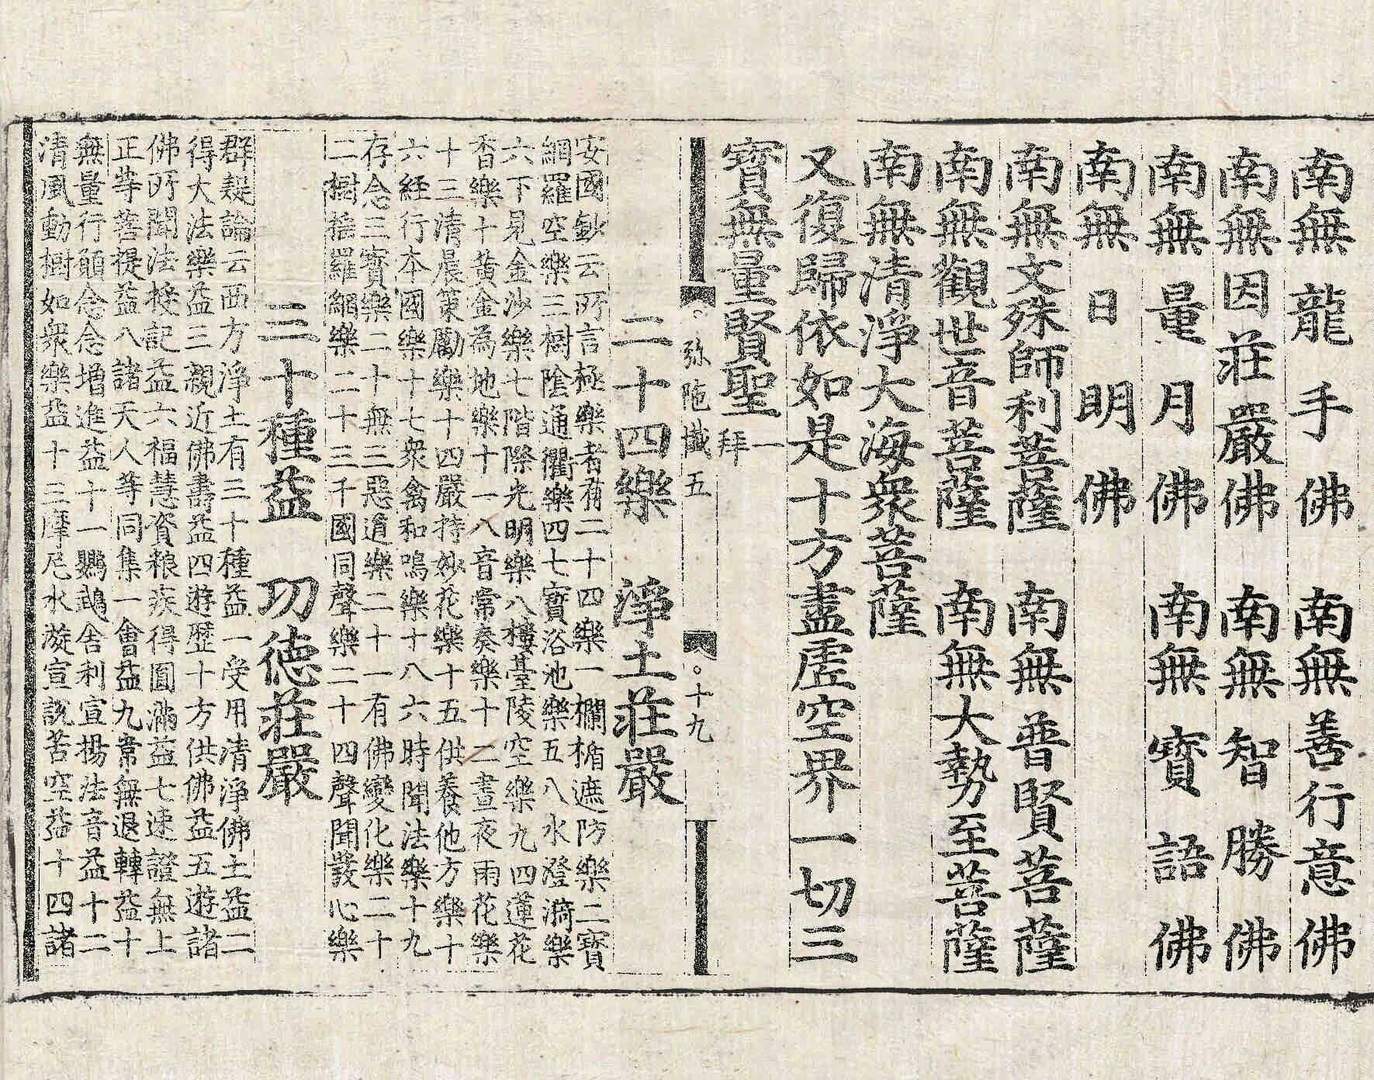 南無龍手佛 南無善行意佛
南無因莊嚴佛 南無智勝佛
南無量月佛 南無寶語佛
南無日明佛
南無文殊師利菩薩 南無普賢菩薩
南無觀世音菩薩 南無大勢至菩薩
南無清淨大海衆菩薩
又復歸依如是十方盡虛空界一切三
寶無量賢聖 一拜
弥陁懺五 十九
二十四樂 淨土莊嚴
安國鈔云所言極樂者有二十四樂一欄楯遮防樂二寶
網羅空樂三樹陰通衢樂四七寶浴池樂五八水澄漪樂
六下見金沙樂七階際光明樂八樓臺陵空樂九四蓮花
香樂十黃金為地樂十一八音常奏樂十二晝夜雨花樂
十三清晨策勵樂十四嚴持妙花樂十五供養他方樂十
六経行本國樂十七衆禽和鳴樂十八六時聞法樂十九
存念三寶樂二十無三惡道樂二十一有佛變化樂二十
二樹揺羅網樂二十三千國同聲樂二十四聲聞發心樂
三十種益 功德莊嚴
群疑論云西方淨土有三十種益一受用清淨佛土益二
得大法樂益三親近佛壽益四遊歷十方供佛益五遊諸
佛所聞法授記益六福慧資粮疾得圓滿益七速證無上
正等菩提益八諸天人等同集一會益九常無退轉益十
無量行願念念增進益十一鸚鵡舍利宣揚法音益十二
清風動樹如衆樂益十三摩尼水漩宣說苦空益十四諸